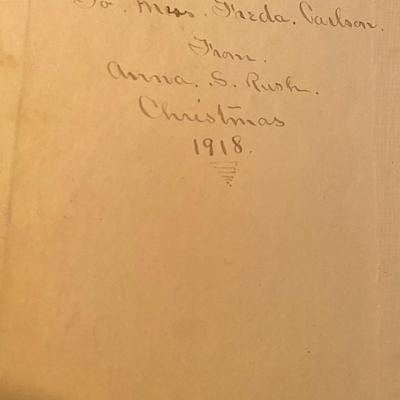 To. Miss. Freda. Carlson.
From.
Anna. S. Rush.
Christmas
1918.